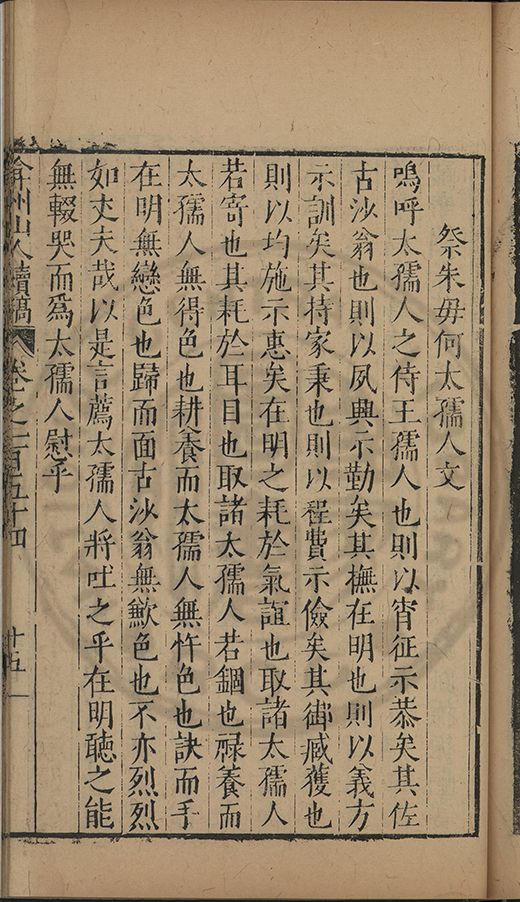 祭朱毋何太孺人文
嗚呼太孺人之侍王孺人也則以宵征示恭矣其佐
古沙翁也則以夙興示勤矣其撫在明也則以義方
示訓矣其持家秉也則以程費示儉矣其御臧獲也
則以均施示惠矣在明之耗於氣誼也取諸太孺人
若寄也其耗於耳目也取諸太孺人若錮也祿養而
太孺人無得色也耕養而太孺人無忤色也訣而手
在明無戀色也歸而面古沙翁無歉色也不亦烈烈
如丈夫哉以是言薦太孺人將吐之乎在明聽之能
無輟哭而爲太孺人慰乎
弇州山人續稿 卷之一百五十四 十五